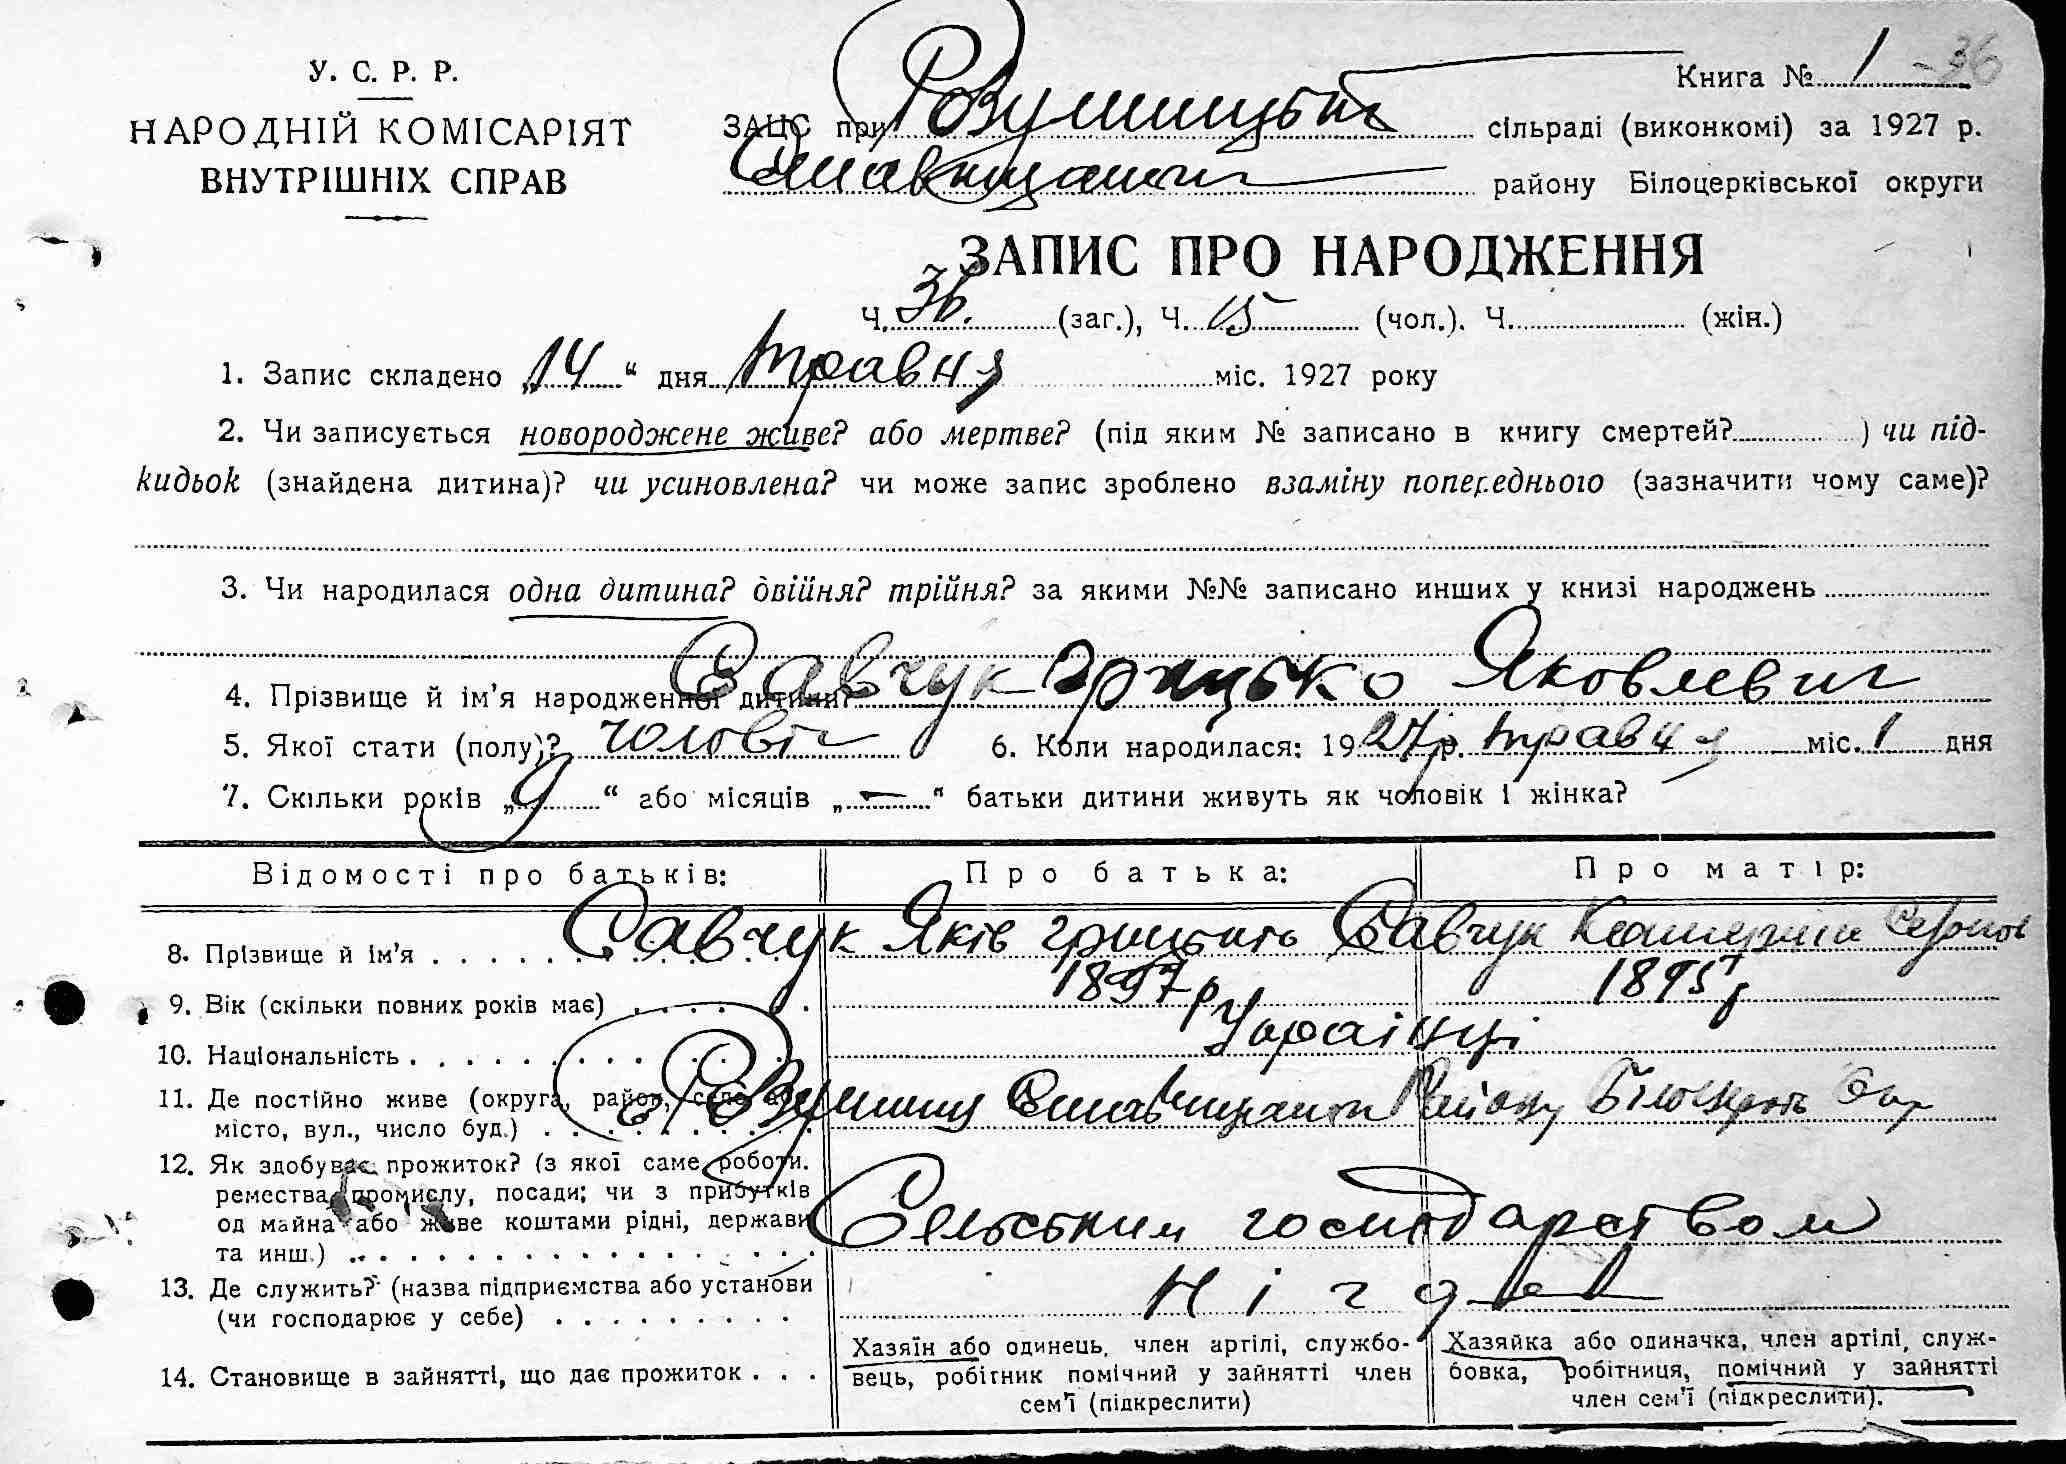 У. С. Р. Р.
НАРОДНІЙ КОМІСАРІЯТ
ВНУТРІШНІХ СПРАВ
Книга № 1 - 36
ЗАЦС при Розумницькій сільраді (виконкомі) за 1927 р.
району Білоцерківської округи
ЗАПИС ПРО НАРОДЖЕННЯ
Ч. 36. (заг.), Ч. 15 (чол.). Ч. (жін.)
1. Запис складено „14“ дня Травня міс. 1927 року
2. Чи записується новороджене живе? або мертве? (під яким № записано в книгу смертей? ) чи під-
кидьок (знайдена дитина)? чи усиновлена? чи може запис зроблено взаміну попереднього (зазначити чому саме)?
3. Чи народилася одна дитина? двійня? трійня? за якими №№ записано инших у книзі народжень
4. Прізвище й ім'я народженної дитини? Савчук Грицько Яковлевич
5. Якої стати (полу)? чоловіч 6. Коли народилася: 1927 р. Травня міс. 1 дня
7. Скільки років „9“ або місяців „—“ батьки дитини живуть як чоловік і жінка?
Відомості про батьків: Про батька: Про матір:
8. Прізвище й ім'я Савчук Яків Савчук Катерина
9. Вік (скільки повних років має) 1897 р 1895 р
10. Національність Українці
11. Де постійно живе (округа, район, село або
місто, вул., число буд.) с Розумниц Району Білоцерков Окр
12. Як здобуває прожиток? (з якої саме роботи.
ремества, промислу, посади; чи з прибутків
од майна або живе коштами рідні, держави
та инш.) Сельським господарством
13. Де служить? (назва підприємства або установи
(чи господарює у себе) Нігде
14. Становище в зайнятті, що дає прожиток
Хазяїн або одинець, член артілі, службо-
вець, робітник помічний у зайнятті член
сем'ї (підкреслити)
Хазяйка або одиначка, член артілі, служ-
бовка, робітниця, помічний у зайнятті
член сем'ї (підкреслити).